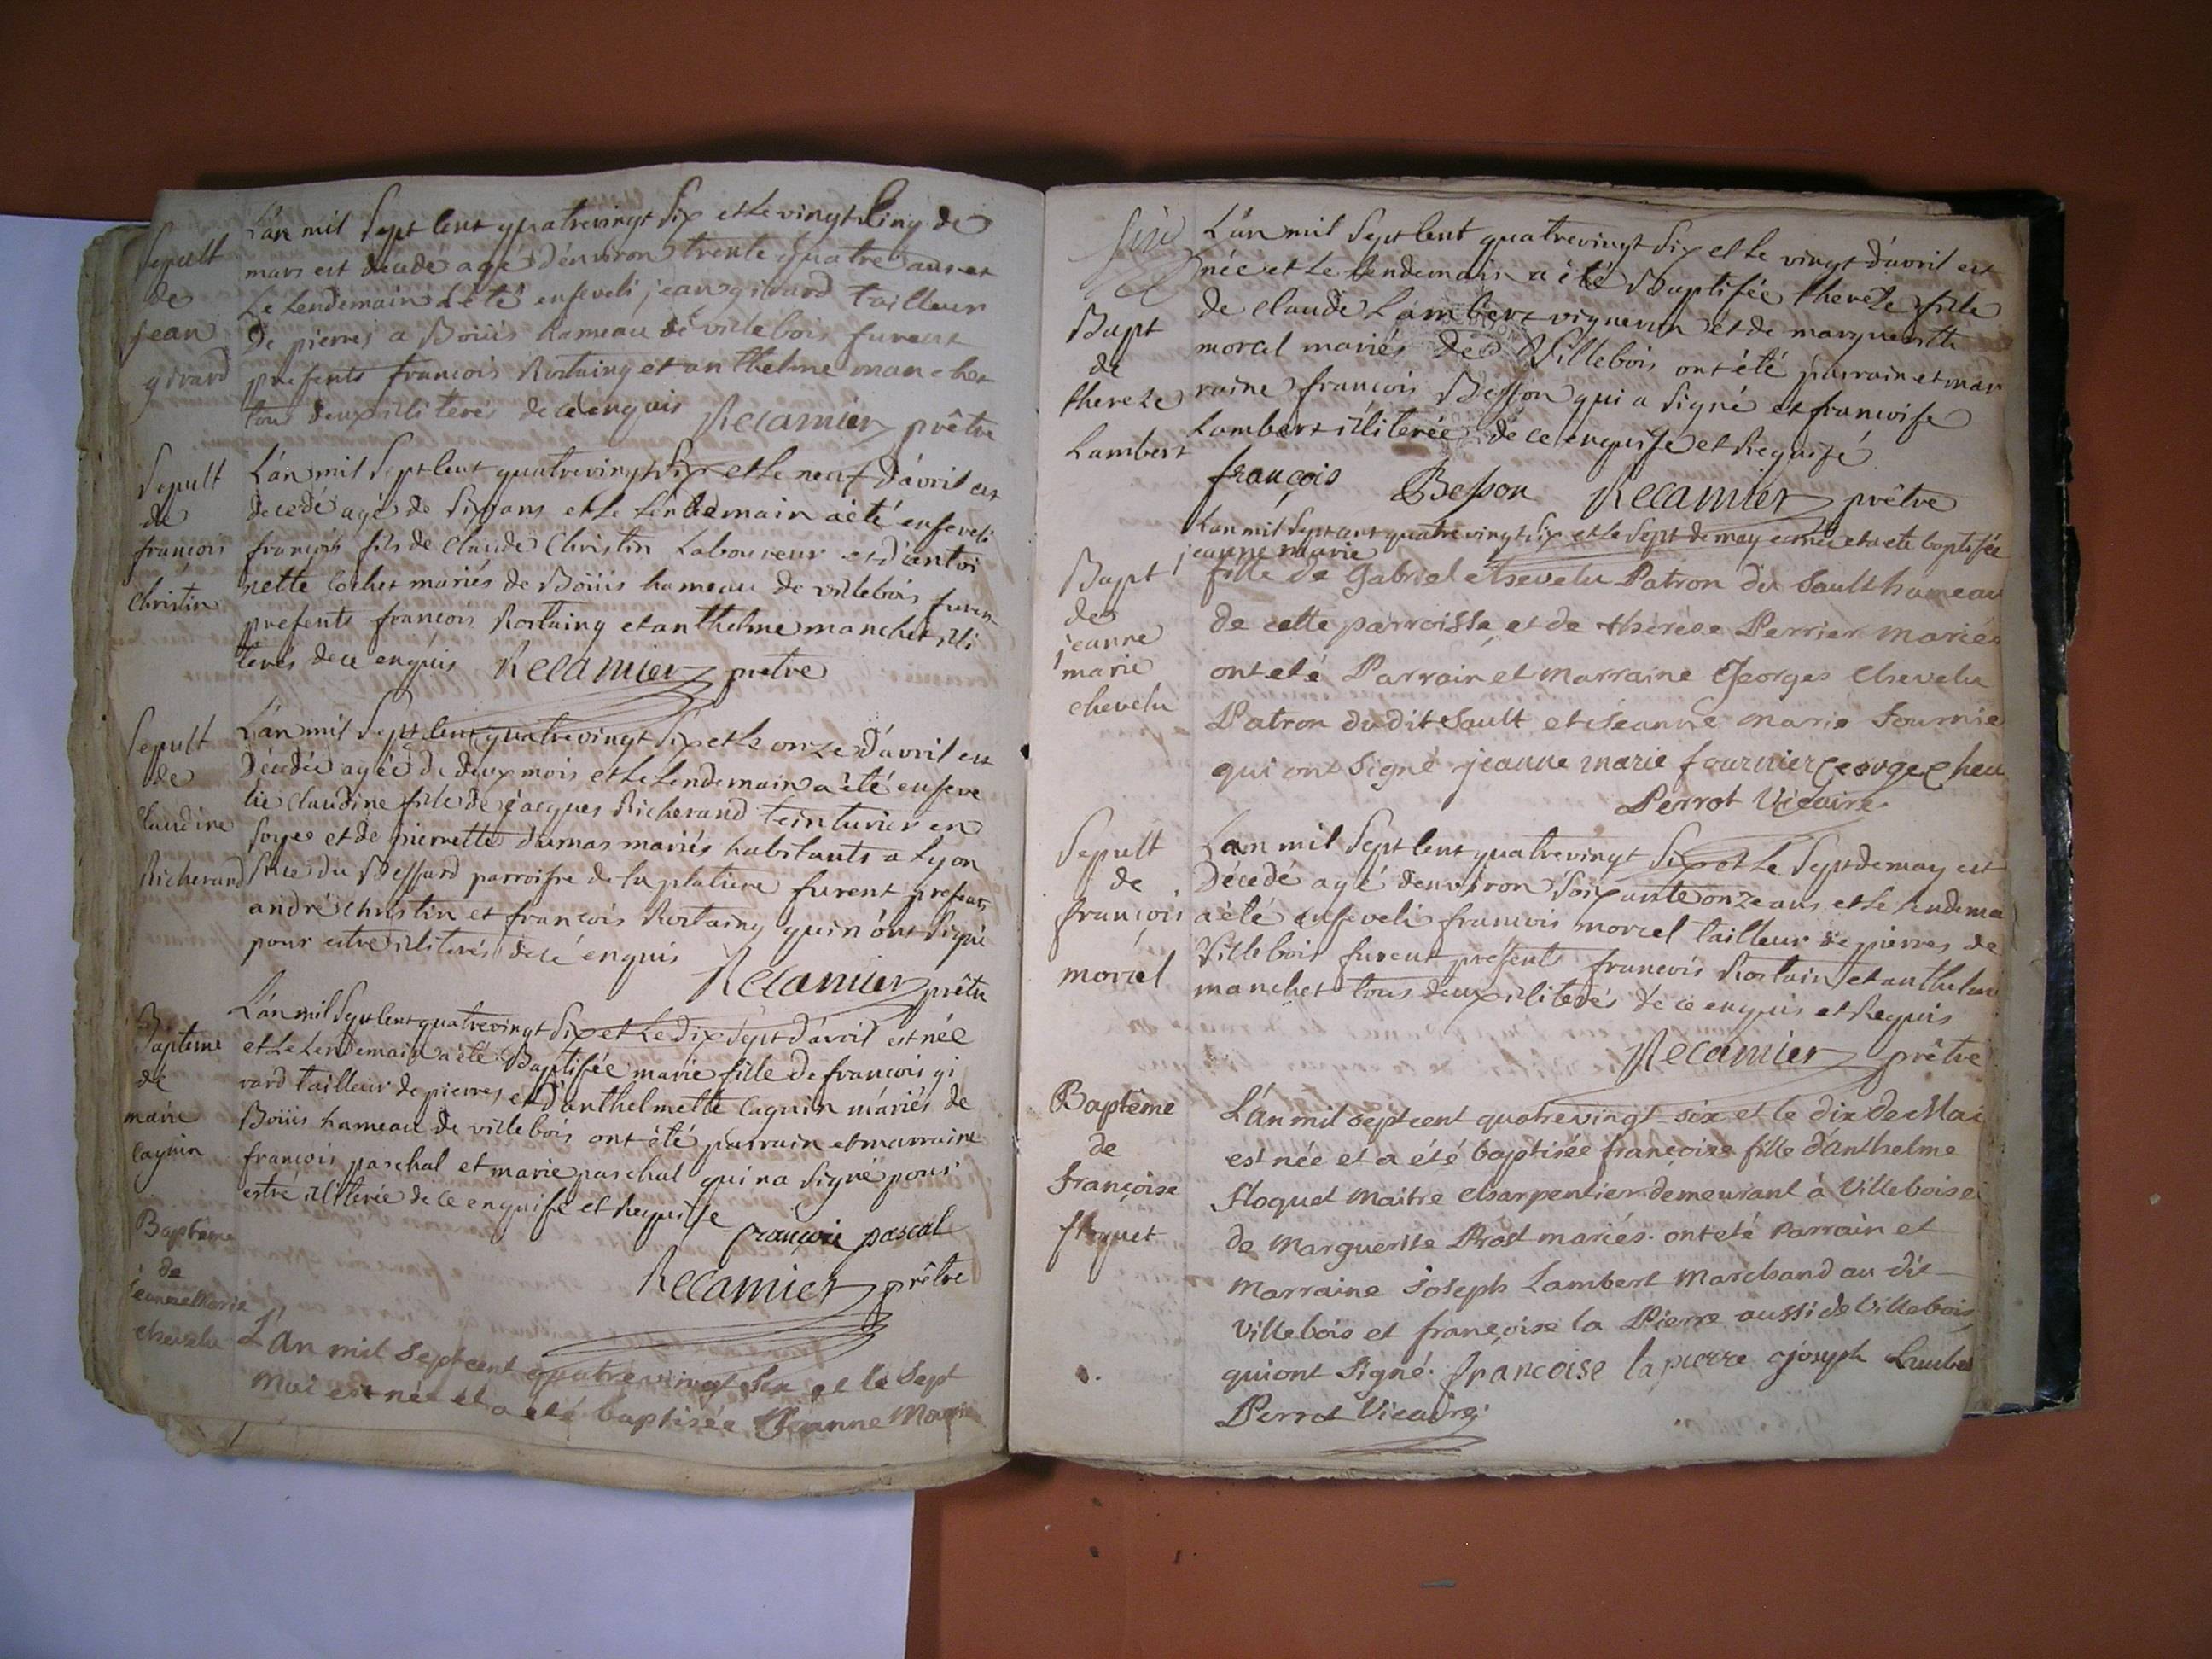 Sepult
de
jean
girard
L'an mil Sept Cent quatrevingt Six et le vingt Cinq de
mars est décédé agé d'environ trente quatre ans et
Le Lendemain a été enseveli jean girard tailleur
De pierres a Boüis hameau de villebois furent
presents françois Rostaing et anthelme manchet
tous deux illiterés de ce enquis Recamier prêtre
Sepult
de
françois
Christin
L'an mil Sept Cent quatrevingt Six et le neuf d'avril est
decedé agé de Six ans et le Lendemain a été enseveli
françois fils de Claude Christin Laboureur et d'antoi
nette Cochet mariés de Boüis hameau de villebois furent
presents françois Rostaing et anthelme manchet illi
terés de ce enquis Recamier prêtre
Sepult
de
Claudine
Richerand
L'an mil Sept Cent quatrevingt Six et le onze d'avril est
Décédée agée de deux mois et le Lendemain a été enseve
lie Claudine fille de jacques Richerand teinturier en
soye et de pierrette dumas mariés habitants a Lyon
Rue du Bessard parroisse de la platiere furent presents
andré Christin et françois Rostaing qui n'ont Signé
pour estre illiterés de cé enquis
Recamier prêtre
Baptême
de
marie
Caguin
L'an mil Sept Cent quatrevingt Six et Le Dix Sept d'avril est née
et Le Lendemain a été Baptisée marie fille de françois gi
rard tailleur de pierres et d'anthelmette Caguin mariés de
Boüis hameau de villebois ont été parrain et marraine
françois paschal et marie paschal qui na Signé pour
estre illiterée de ce enquise et Requise françois pascal
Recamier prêtre
Baptême
de
Jeanne Marie
chevelu
L'An mil Sept cent quatrevingt Six et le Sept
Mai est née et a eté baptisée Jeanne Marie
Bapt
de
thereze
Lambert
L'an mil Sept Cent quatrevingt Six et le vingt d'avril est
née et Le Lendemain a été Baptisée thereze fille
de Claude Lambert vigneron et de marguerite
morcel mariés de Villebois ont été parrain et mar
raine françois Besson qui a Signé et françoise
Lambert illiterée de ce enquise et Requise
françois Besson Recamier prêtre
Bapt
de
jeanne
marie
chevelu
L'an mil Sept cent quatrevingt Six et le Sept de may est née et a eté baptisée
jeanne marie
fille de Gabriel chevelu Patron du Sault hameau
de cette parroisse et de thérèse Perrier Mariés
ont eté Parrain et Marraine Georges Chevelu
Patron du dit Sault et Jeanne Marie Fournie
qui ont Signé jeanne marie fournier George Cheu
Perrot Vicaire
Sepult
de
françois
morcel
L'an mil Sept Cent quatrevingt Six et Le Sept de may est
Décedé agé d'environ Soixante onze ans et Le Lendema
a été enseveli françois morcel tailleur de pierres de
Villebois furent presents françois Rostain et anthelme
manchet tous deux illiterés de ce enquis et Requis
Recamier prêtre
Baptême
de
Françoise
floquet
L'An mil sept cent quatrevingt-six et le dix de Mai
est née et a été baptisée françoise fille d'Anthelme
Floquet Maitre charpentier demeurant à Villebois e
de Marguerite Prost mariés. ont eté Parrain et
Marraine Joseph Lambert Marchand au dit
Villebois et françoise la Pierre aussi de Villebois
qui ont Signé. francoise lapierre joseph Lambe
Perrot Vicaire